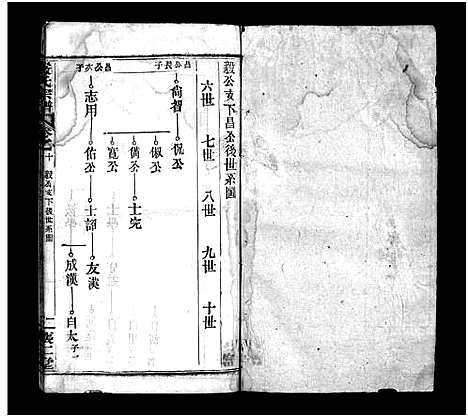 毅公支下昌公後世系圖
六世 七世 八世 九世 十世
昌公長子
尚智 侃公
俶公
倘公 士完
寬公
昌公次子
志用 佑公 士韶 友漢
成漢 自太 子一
宗譜
毅公支下後世系圖